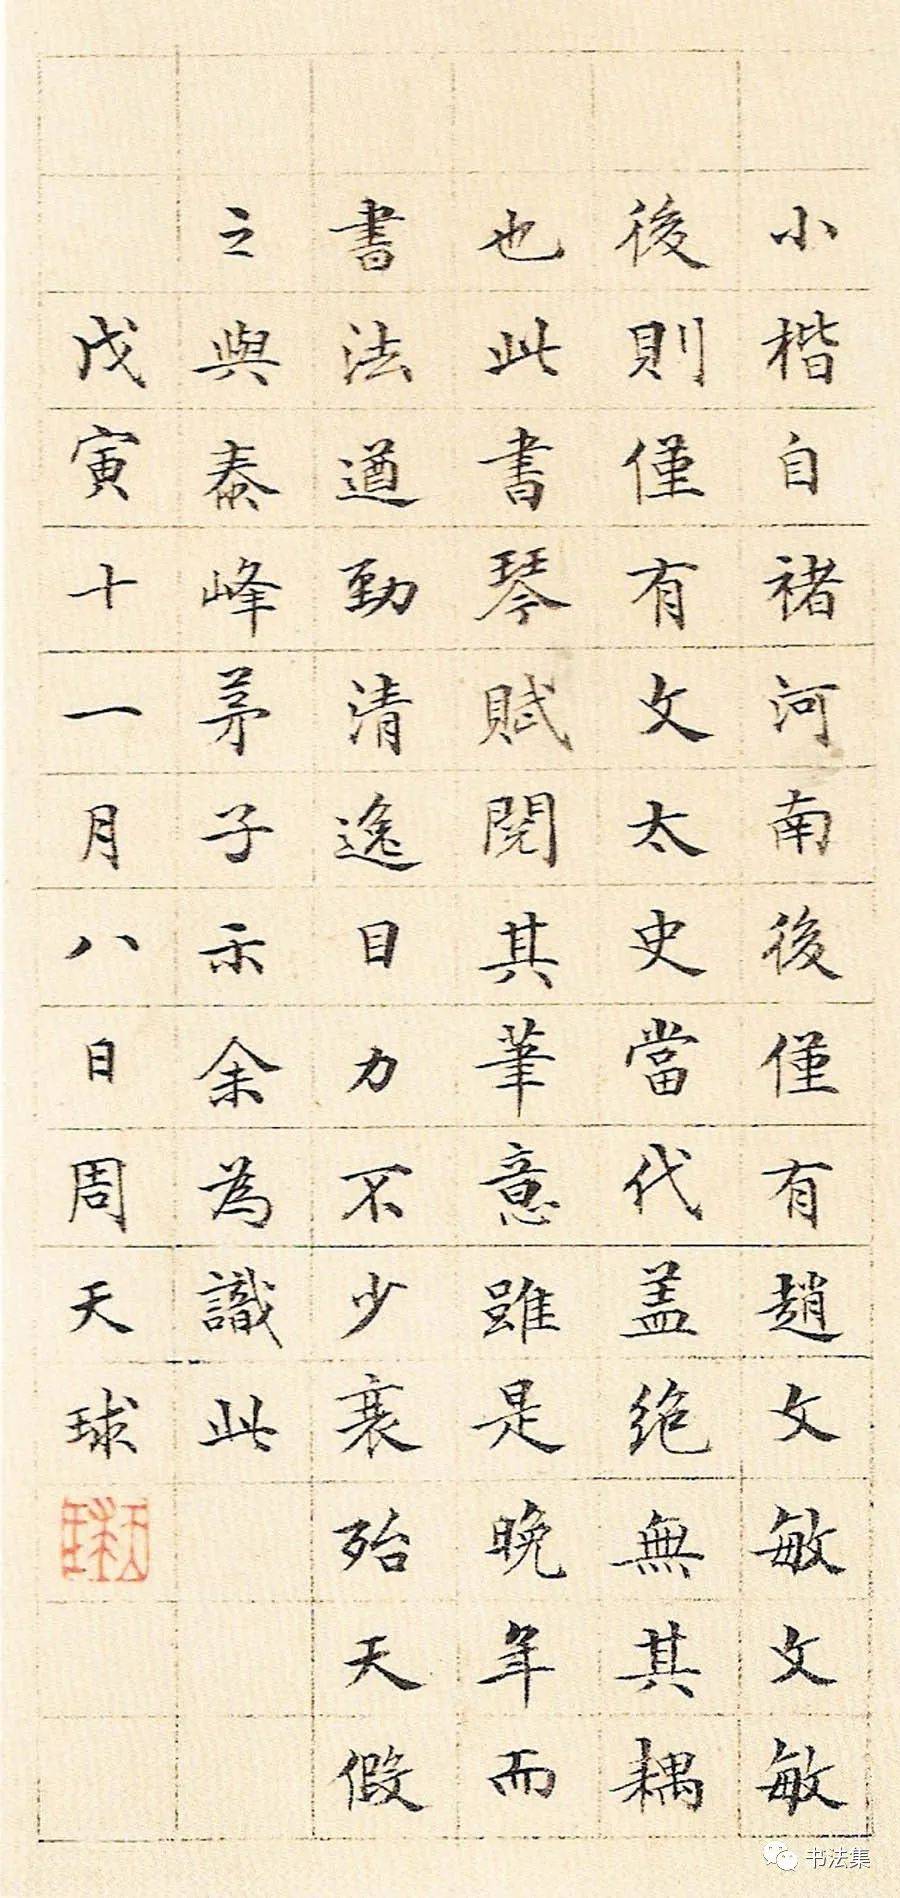 小楷自褚河南後僅有趙文敏文敏
後則僅有文太史當代盖絶無其耦
也此書琴賦閱其筆意雖是晚年而
書法遒勁清逸目力不少衰殆天假
之與泰峰茅子示余為識此
戊寅十一月八日周天球
书法集